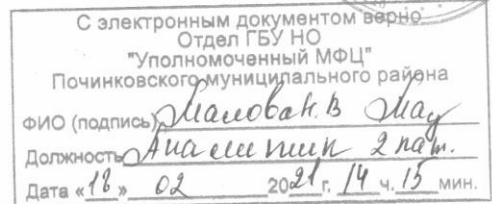 С электронным документом верно
Отдел ГБУ НО
"Уполномоченный МФЦ"
Починковского муниципального района
ФИО (подпись) Малова Н.В
Должность Аналитик 2 кат.
Дата «18» 02 2021 г. 14 ч. 15 мин.